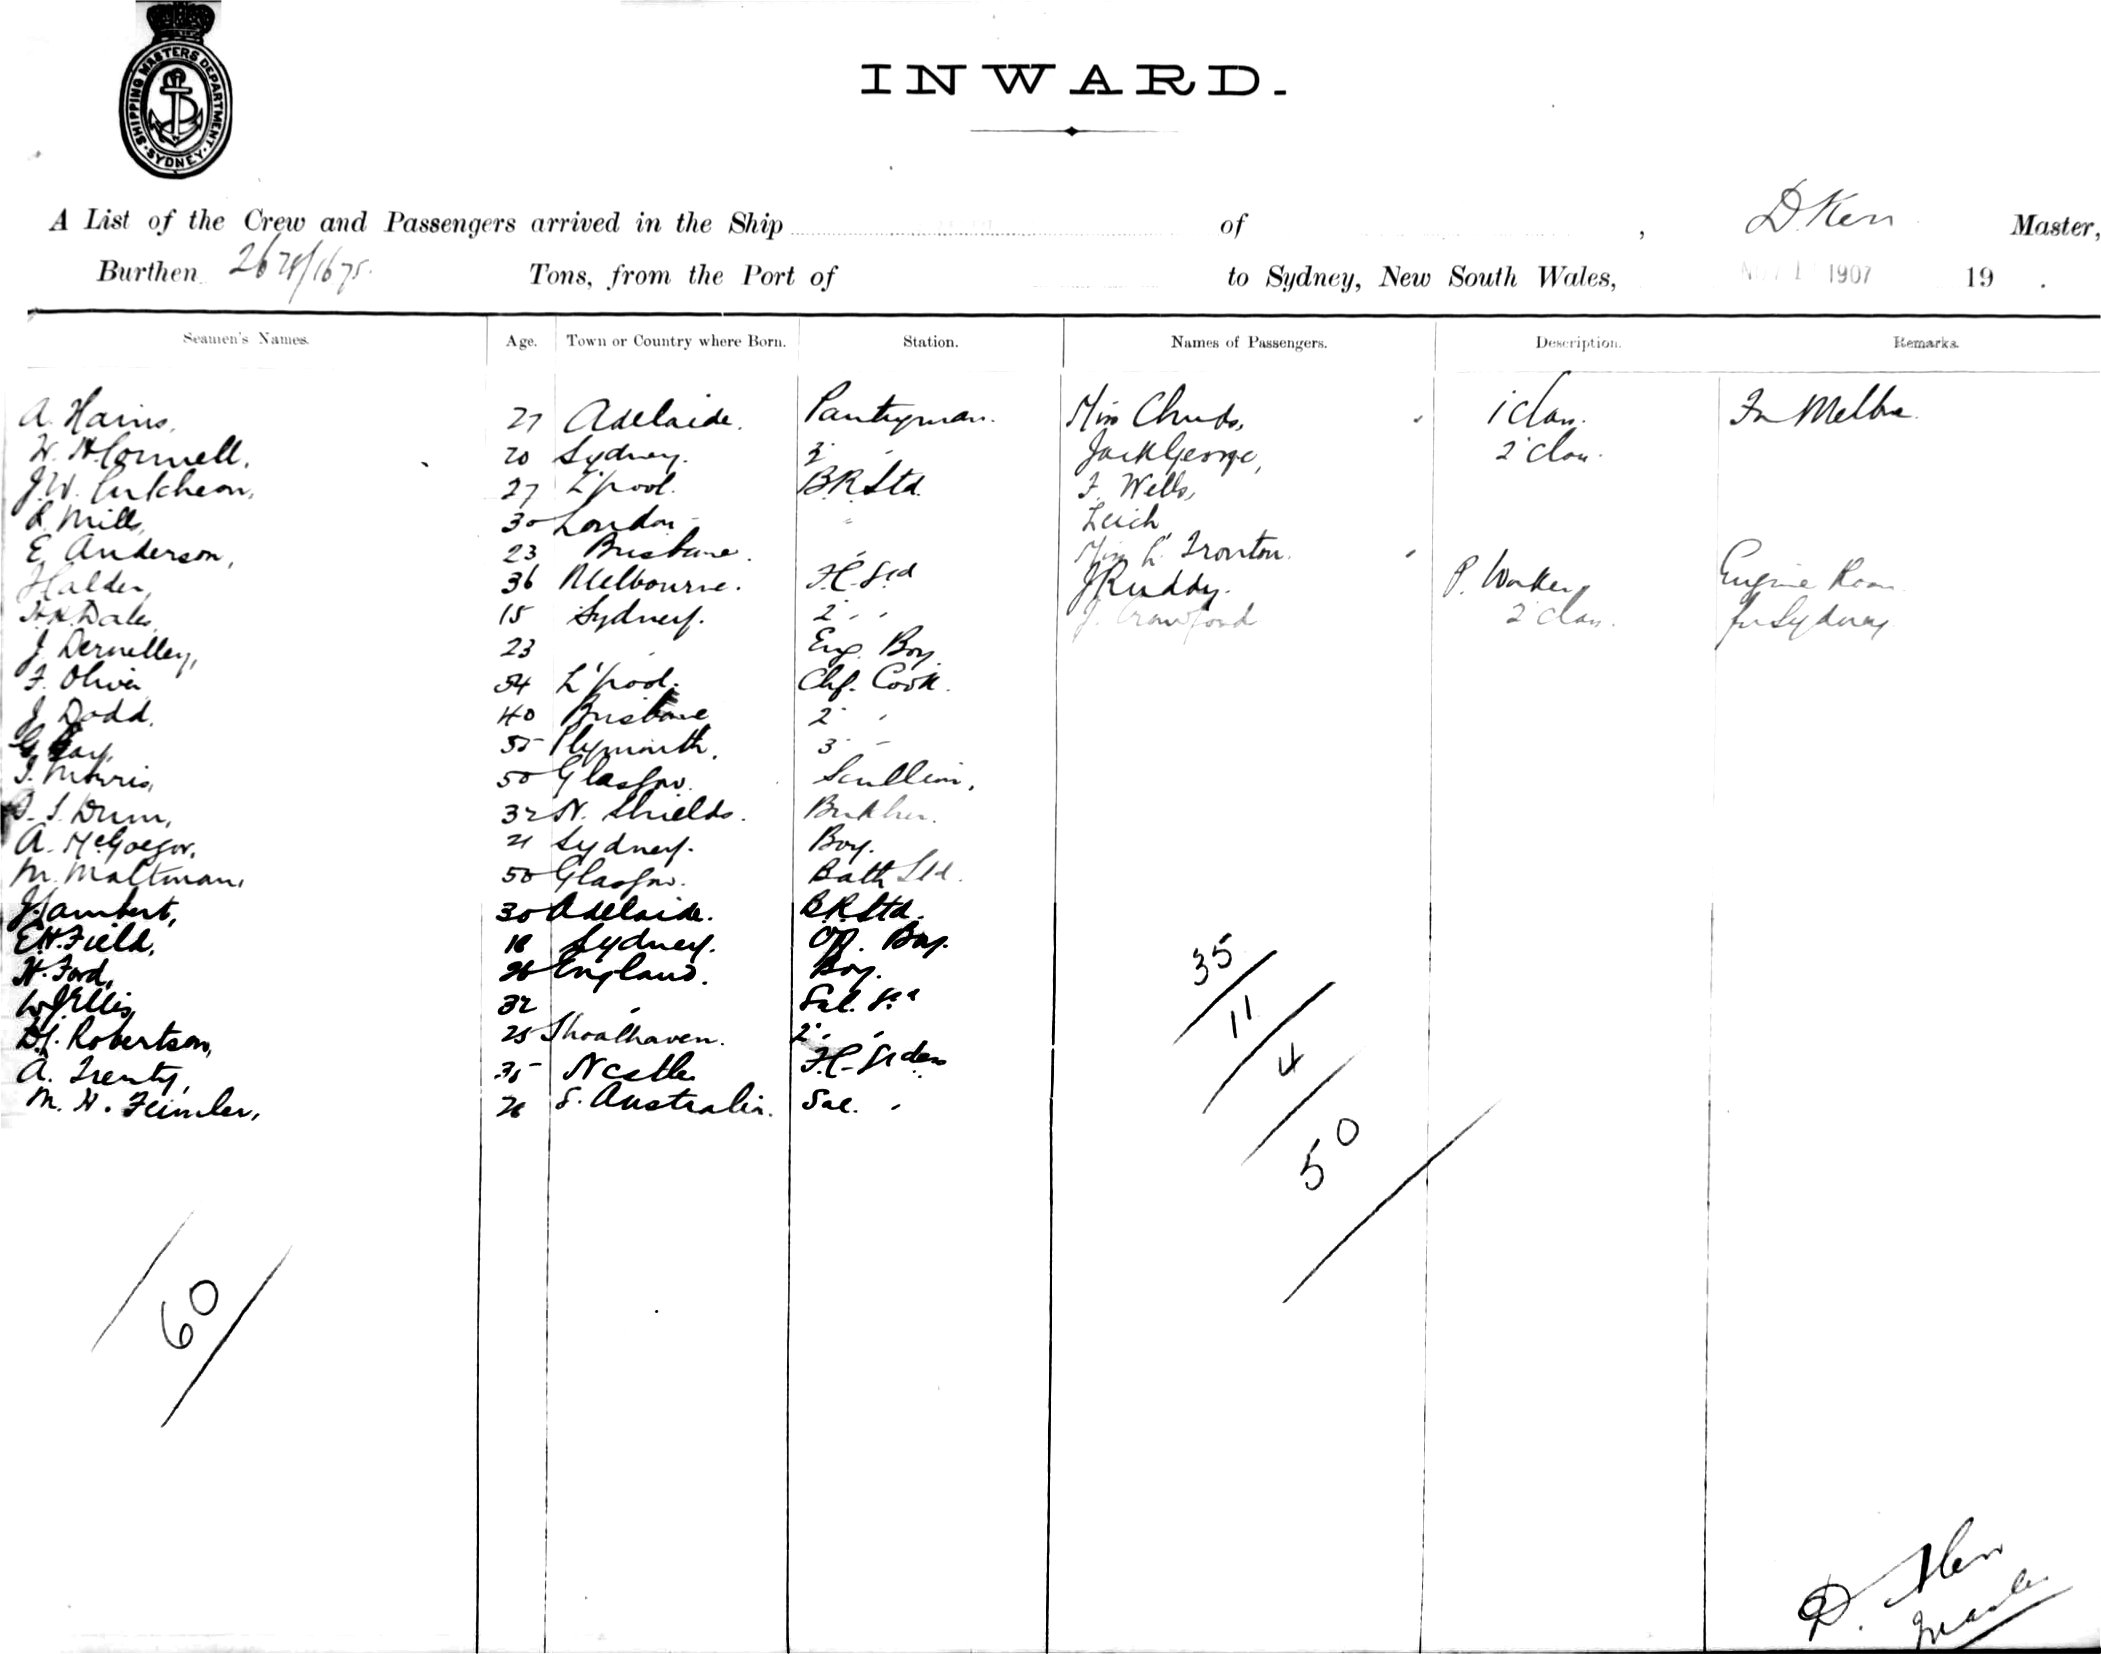 SHIPPING MASTERS DEPARTMENT · SYDNEY ·
INWARD.
A List of the Crew and Passengers arrived in the Ship of , D. Kerr Master,
Burthen 2671/1675 Tons, from the Port of to Sydney, New South Wales, NOV 1 1907 19 .
Seamen's Names. Age. Town or Country where Born. Station. Names of Passengers. Description. Remarks.
A. Hains, 27 Adelaide. Pantryman. Miss Chubs, 1 class. Fr Melbne.
W. H. Connell, 20 Sydney. 2 " Jack George, 2 class.
J. W. Cutcheon, 27 L'pool. B.R. Std. F. Wells,
R. Mills, 30 London Leich
E Anderson, 23 Brisbane. " Miss Tronton.
Halden, 36 Melbourne. F.C. Std J Ruddy. P. Worker, Engine Room
Dales, 15 Sydney. 2 " " J. Crawford 2 class. Fr Sydney
J. Dernelley, 23 " Eng. Boy
F. Oliver 54 L'pool. Chf. Cook.
J. Dodd, 40 Brisbane 2 "
G. 55 Plymouth. 3 "
J. Morris, 50 Glasgow. Scullion.
J. Dunn, 32 N. Shields. Butcher.
A. McGregor, 21 Sydney. Boy.
M. Maltman, 50 Glasgow. Bath Std.
J. Lambert, 30 Adelaide. B.R. Std.
E.H. Field, 18 Sydney. Boy.
H. Ford, 26 England. Boy.
W J Ellis 32 " Sal. Std
Robertson, 25 Shoalhaven. 2 " "
A. Trenty, 35 N Castle F.C. Stdess
M. H. Feimler, 26 S. Australia. Sal. "
35
11
4
50
60
D. Kerr
Master